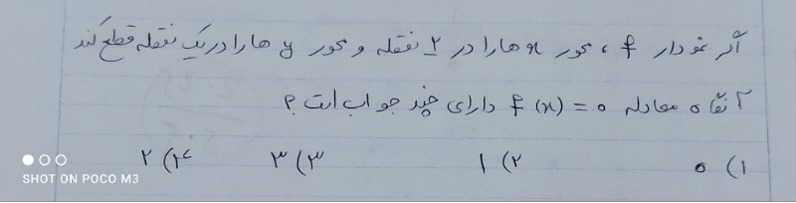 اگر نمودار f ، محور x ها را در ۲ نقطه و محور y ها را در یک نقطه قطع کند
آنگاه معادله f(x) = 0 دارای چند جواب است؟
۱) ۰ ۲) ۱ ۳) ۳ ۴) ۲
SHOT ON POCO M3